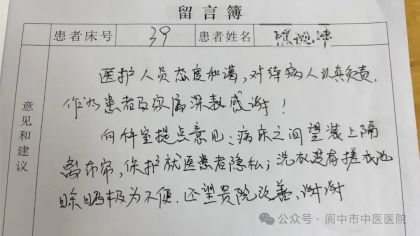 留言簿
患者床号 39 患者姓名
意见和建议
医护人员态度和蔼，对待病人认真负责，
作为患者及家属深表感谢！
向科室提点意见：病床之间望装上隔
离布帘，保护就医患者隐私；洗衣没有搓衣池
晾晒极为不便，还望贵院改善，谢谢
公众号·阆中市中医医院